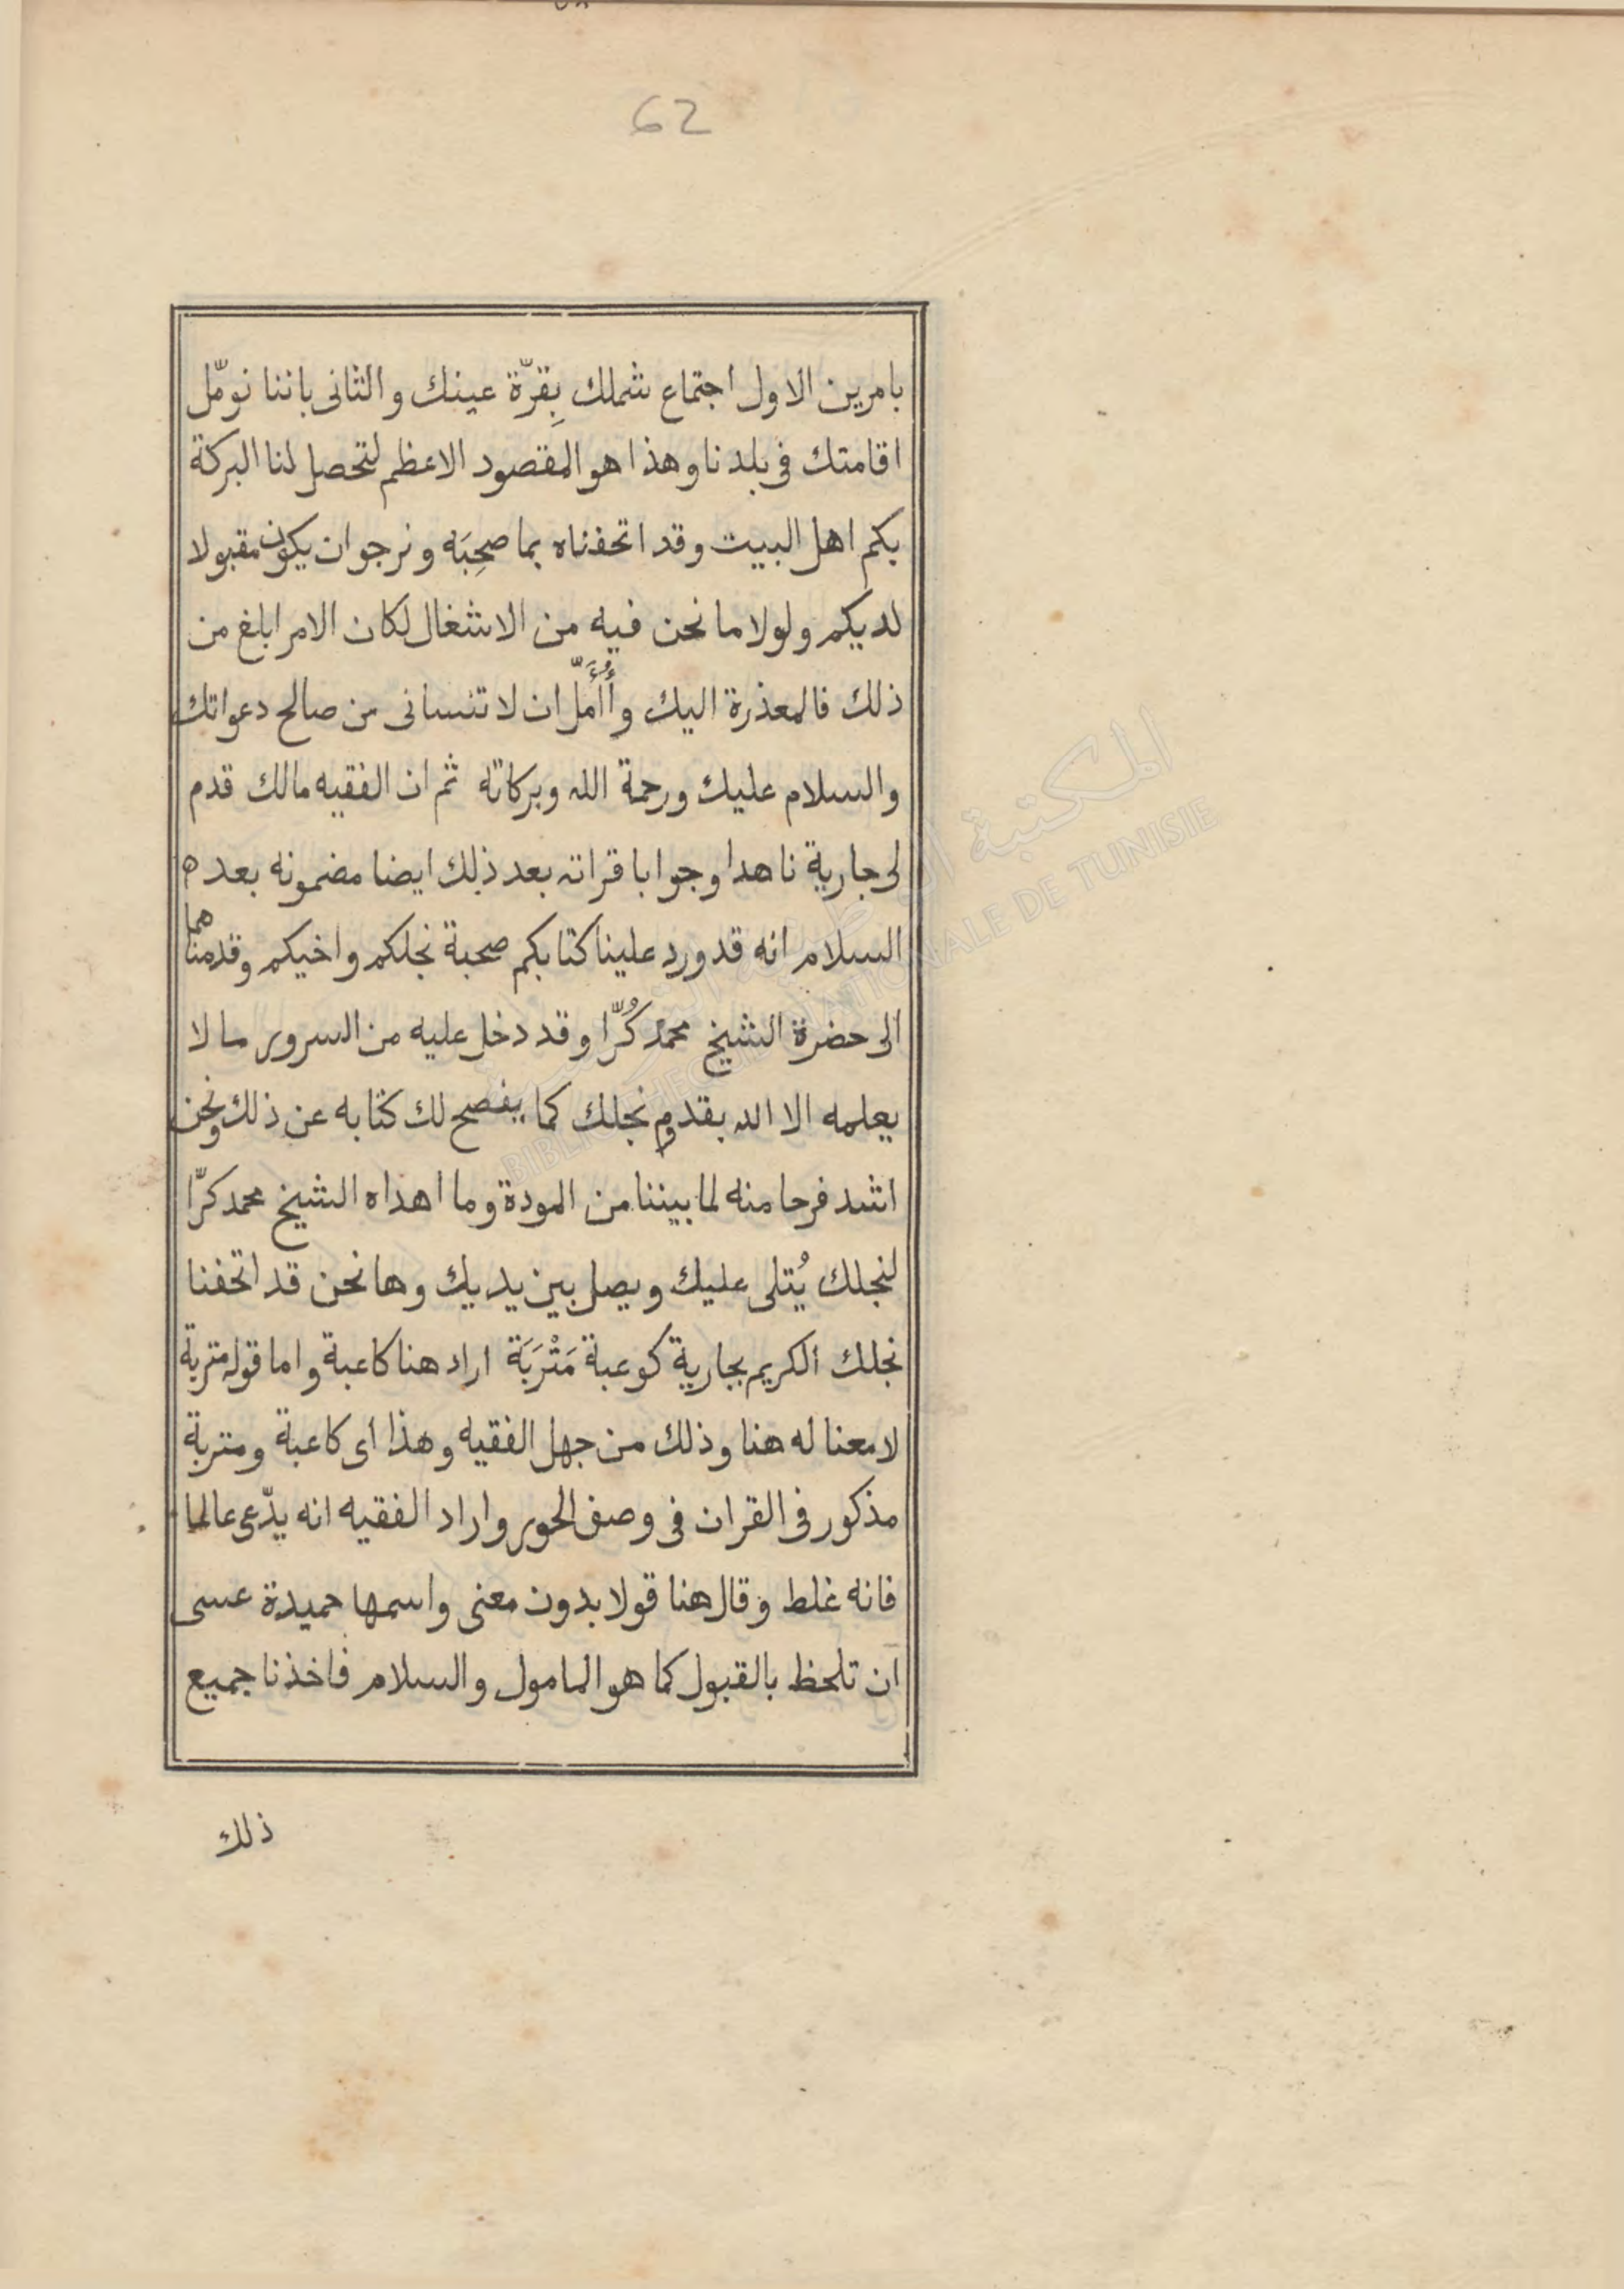 62
بامرين الاول اجتماع شملك بِقرّة عينك والثانى باننا نومّل
اقامتك فى بلدنا وهذا هو المقصود الاعظم لتحصل لنا البركة
بكم اهل البيت وقد اتحفناه بما صحِبَه ونرجوان يكون مقبولا
لديكم ولولا ما نحن فيه من الاشغال لكان الامر ابلغ من
ذلك فالمعذرة اليك وأُأمِّل ان لا تنسانى من صالح دعواتك
والسلام عليك ورحمة الله وبركاته ثم ان الفقيه مالك قدم
لى جارية ناهدا وجوابا قراته بعد ذلك ايضا مضمونه بعد ه
السلام انه قد ورد علينا كتابكم صحبة نجلكم واخيكم وقدمناهما
الى حضرة الشيخ محمد كُرّا وقد دخل عليه من السرور ما لا
يعلمه الا الله بقدوم نجلك كما يفصح لك كتابه عن ذلك ونحن
اشد فرحا منه لما بيننا من المودة وما اهداه الشيخ محمد كرّا
لنجلك يُتلى عليك ويصل بين يديك وها نحن قد اتحفنا
نجلك الكريم بجارية كوعبة مَتْرَبَة اراد هنا كاعبة واما قوله متربة
لا معنا له هنا وذلك من جهل الفقيه وهذا اى كاعبة ومتربة
مذكور فى القران فى وصف الحور واراد الفقيه انه يدّعى عالما
فانه غلط وقال هنا قولا بدون معنى واسمها حميدة عسى
ان تلحظ بالقبول كما هو المامول والسلام فاخذنا جميع
ذلك
BIBLIOTHEQUE NATIONALE DE TUNISIE